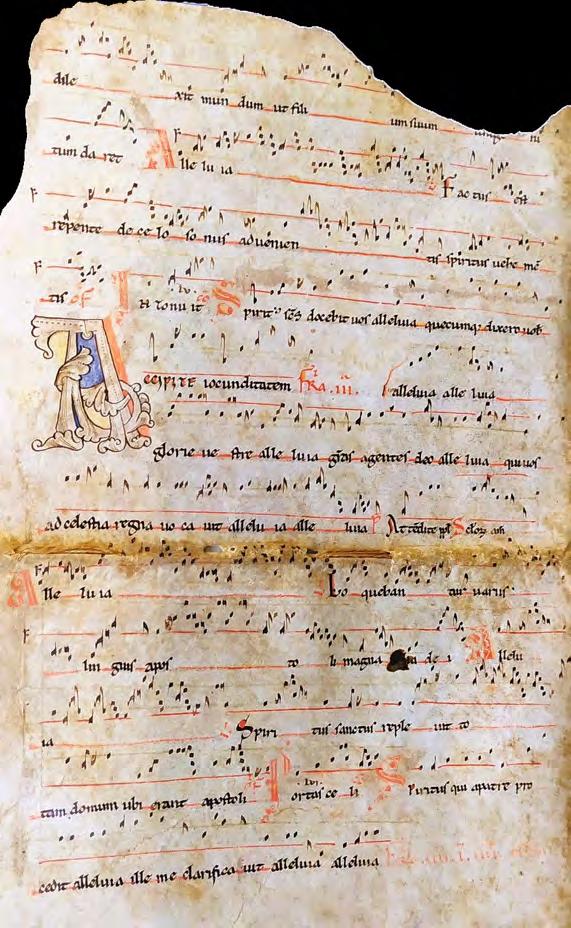 dile xit mun dum ut fili um suum
tum da ret Alle lu ia Fac tus est
repente de ce lo so nus advenien tis spiritus vehe mē
tis of Intonuit co Spirit sc̄s docebit vos alleluia quecumq; dixero vob
Accipite iocunditatem Fēria .iii. alleluia alle luia
glorie ve stre alle luia grās agentes deo alle luia qui vos
ad celestia regna vo ca vit allelu ia alle luia Attendite
Alle lu ia Lo queban tur variis
lin guis apos to li magna lia de i Allelu
ia Spiri tus sanctus reple vit to
tam domum ubi erant apostoli of Portas ce li co Spiritus qui a patre pro
cedit alleluia ille me clarifica vit alleluia alleluia